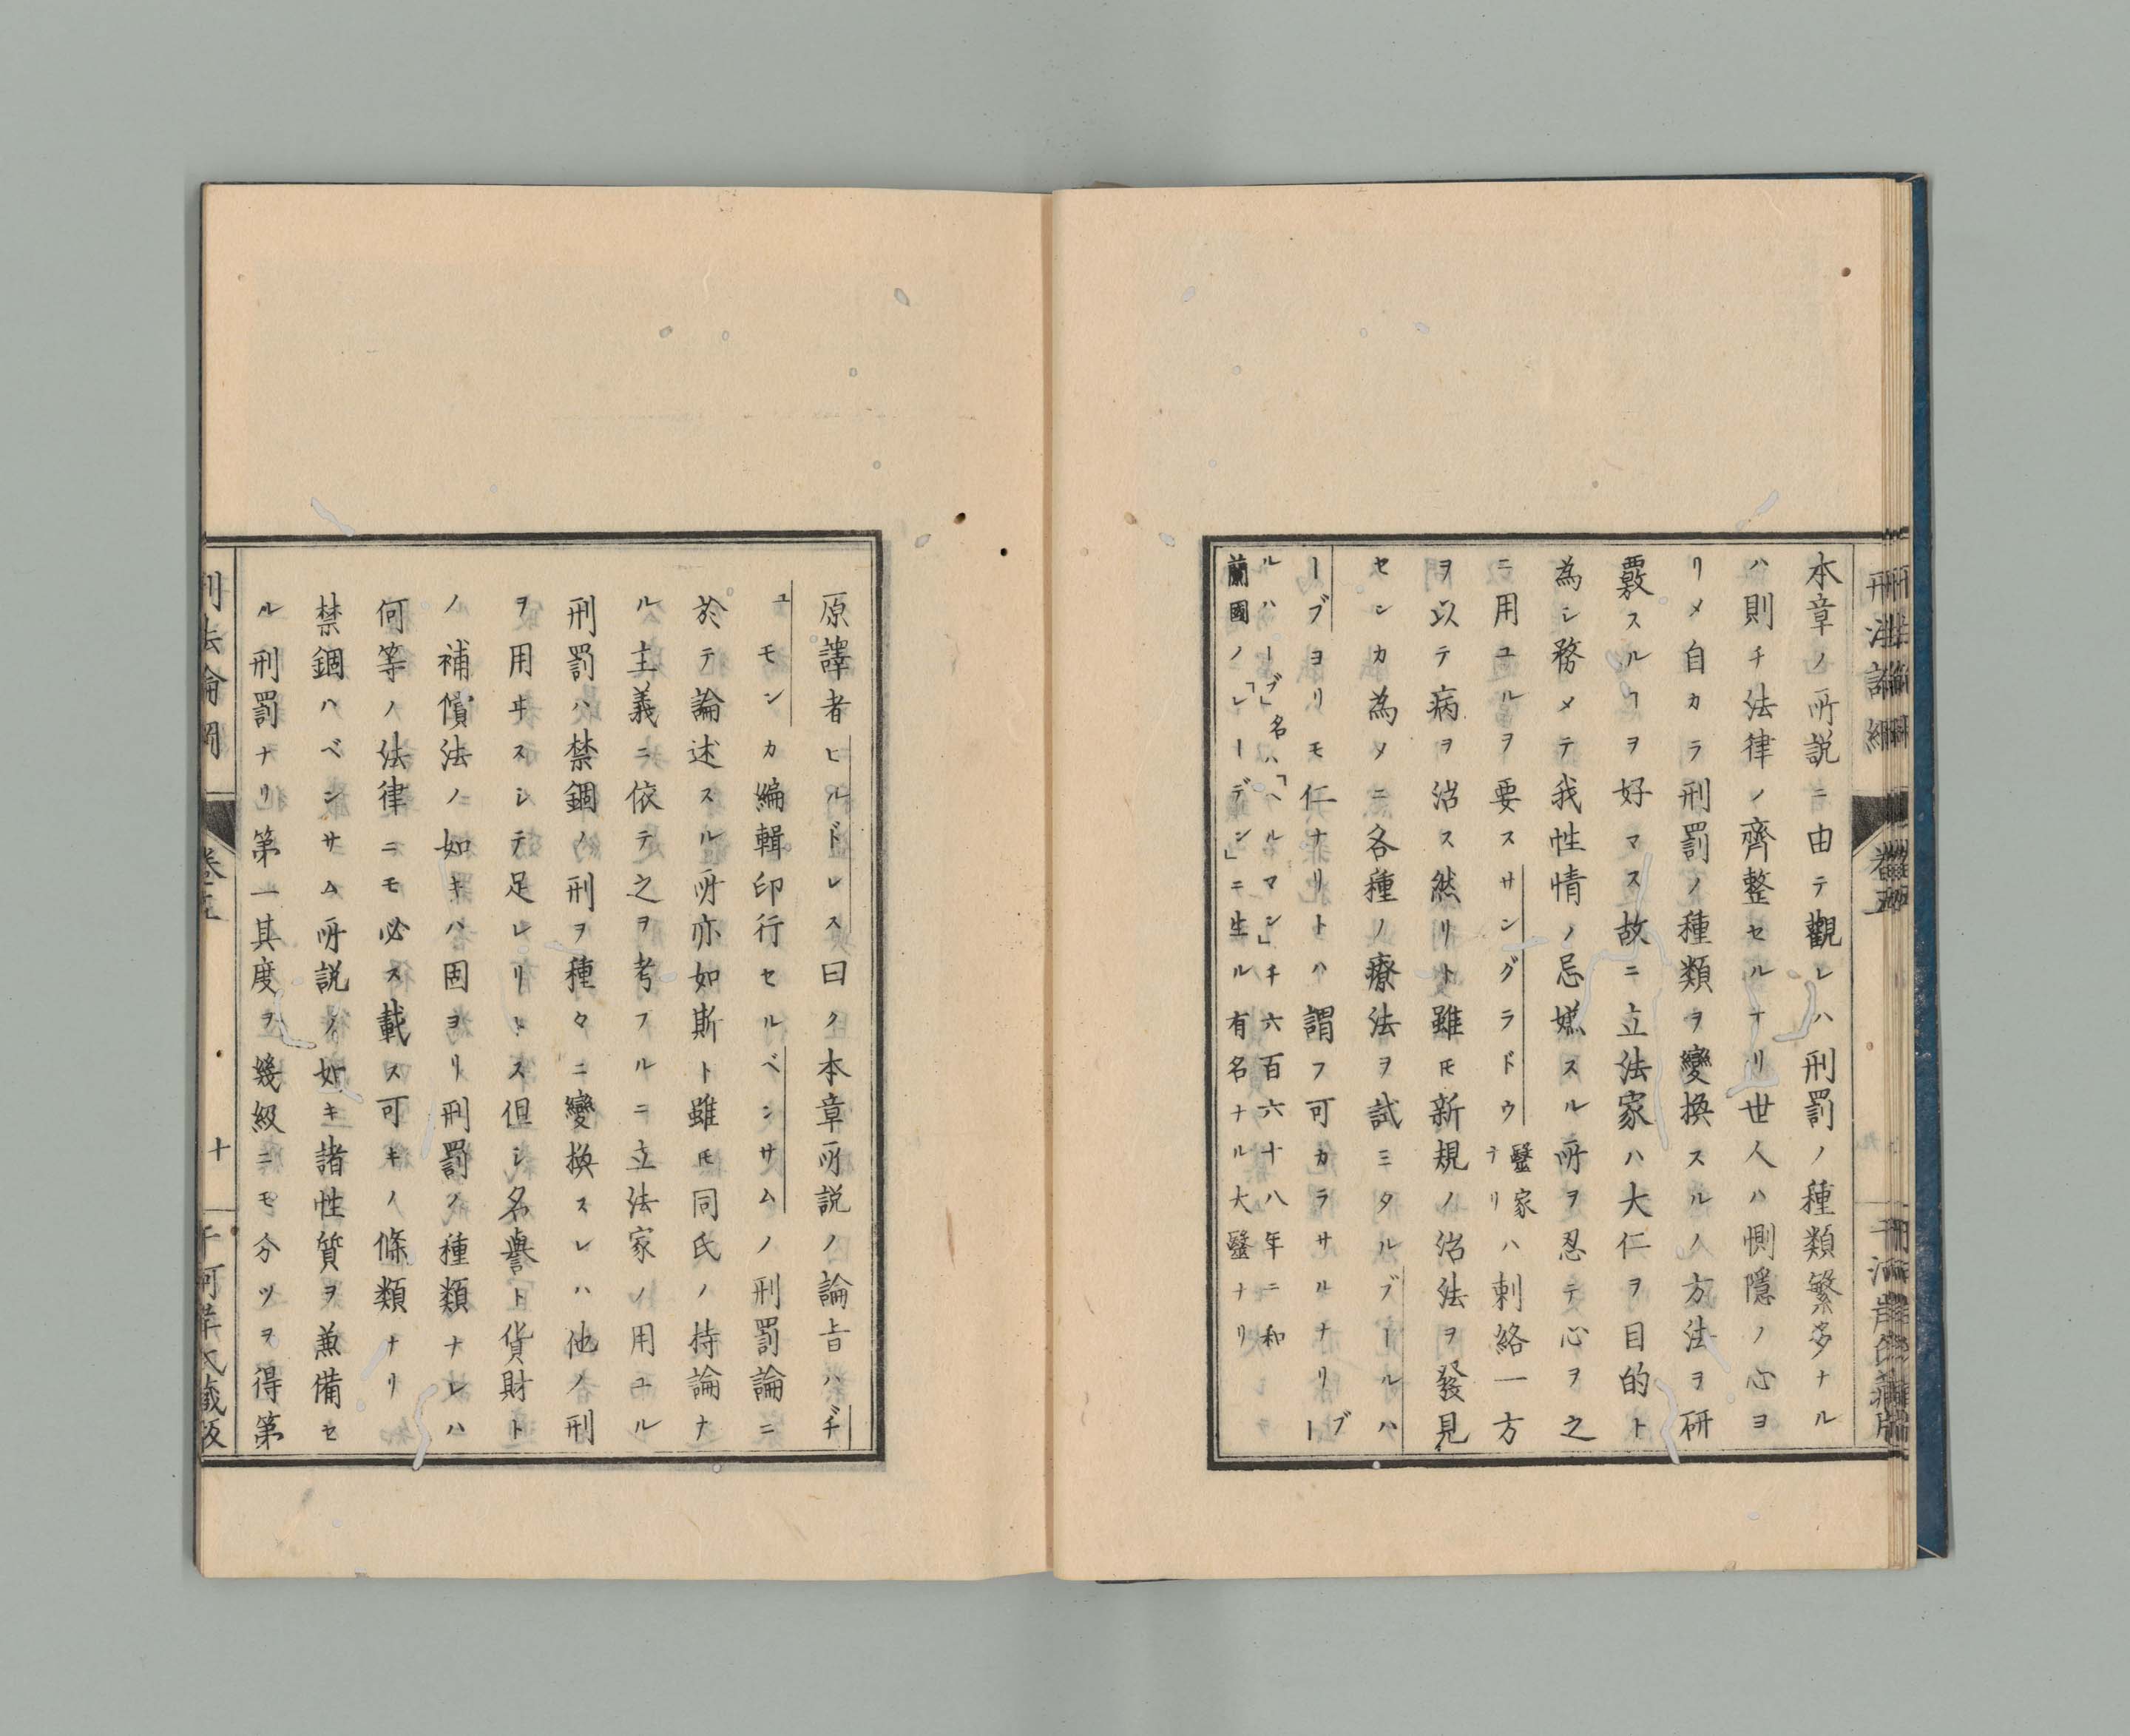 本章ノ所説ニ由テ觀レハ刑罰ノ種類繁多ナル
ハ則チ法律ノ齊整セルナリ世人ハ惻隱ノ心ヨ
リメ自カラ刑罰ノ種類ヲ變換スルノ方法ヲ研
覈スルヿヲ好マス故ニ立法家ハ大仁ヲ目的ト
為シ務メテ我性情ノ忌嫌スル所ヲ忍テ心ヲ之
ニ用ユルヲ要スサングラドウ
醫家ハ刺絡一方
テリ
ヲ以テ病ヲ治ス然リト雖モ新規ノ治法ヲ發見
センカ為メニ各種ノ療法ヲ試ミタルブールハ
ーブヨリモ仁ナリトハ謂フ可カラサルナリ
ブー
ルハーブ」名ハ「ヘルマン」千六百六十八年ニ和
蘭國ノ「レーデン」ニ生ル有名ナル大醫ナリ
原譯者ヒルドレス曰ク本章所説ノ論旨ハヂ
ユモンカ編輯印行セルベンサムノ刑罰論ニ
於テ論述スル所亦如斯ト雖モ同氏ノ持論ナ
ル主義ニ依テ之ヲ考フルニ立法家ノ用ユル
刑罰ハ禁錮ノ刑ヲ種々ニ變換スレハ他ノ刑
ヲ用ヰスシテ足レリトス但シ名譽ト貨財ト
ノ補償法ノ如キハ固ヨリ刑罰ノ種類ナレハ
何等ノ法律ニモ必ス載ス可キノ條類ナリ
禁錮ハベンサム所説ノ如キ諸性質ヲ兼備セ
ル刑罰ナリ第一其度ヲ幾級ニモ分ツヲ得第
刑法論綱
卷五
十